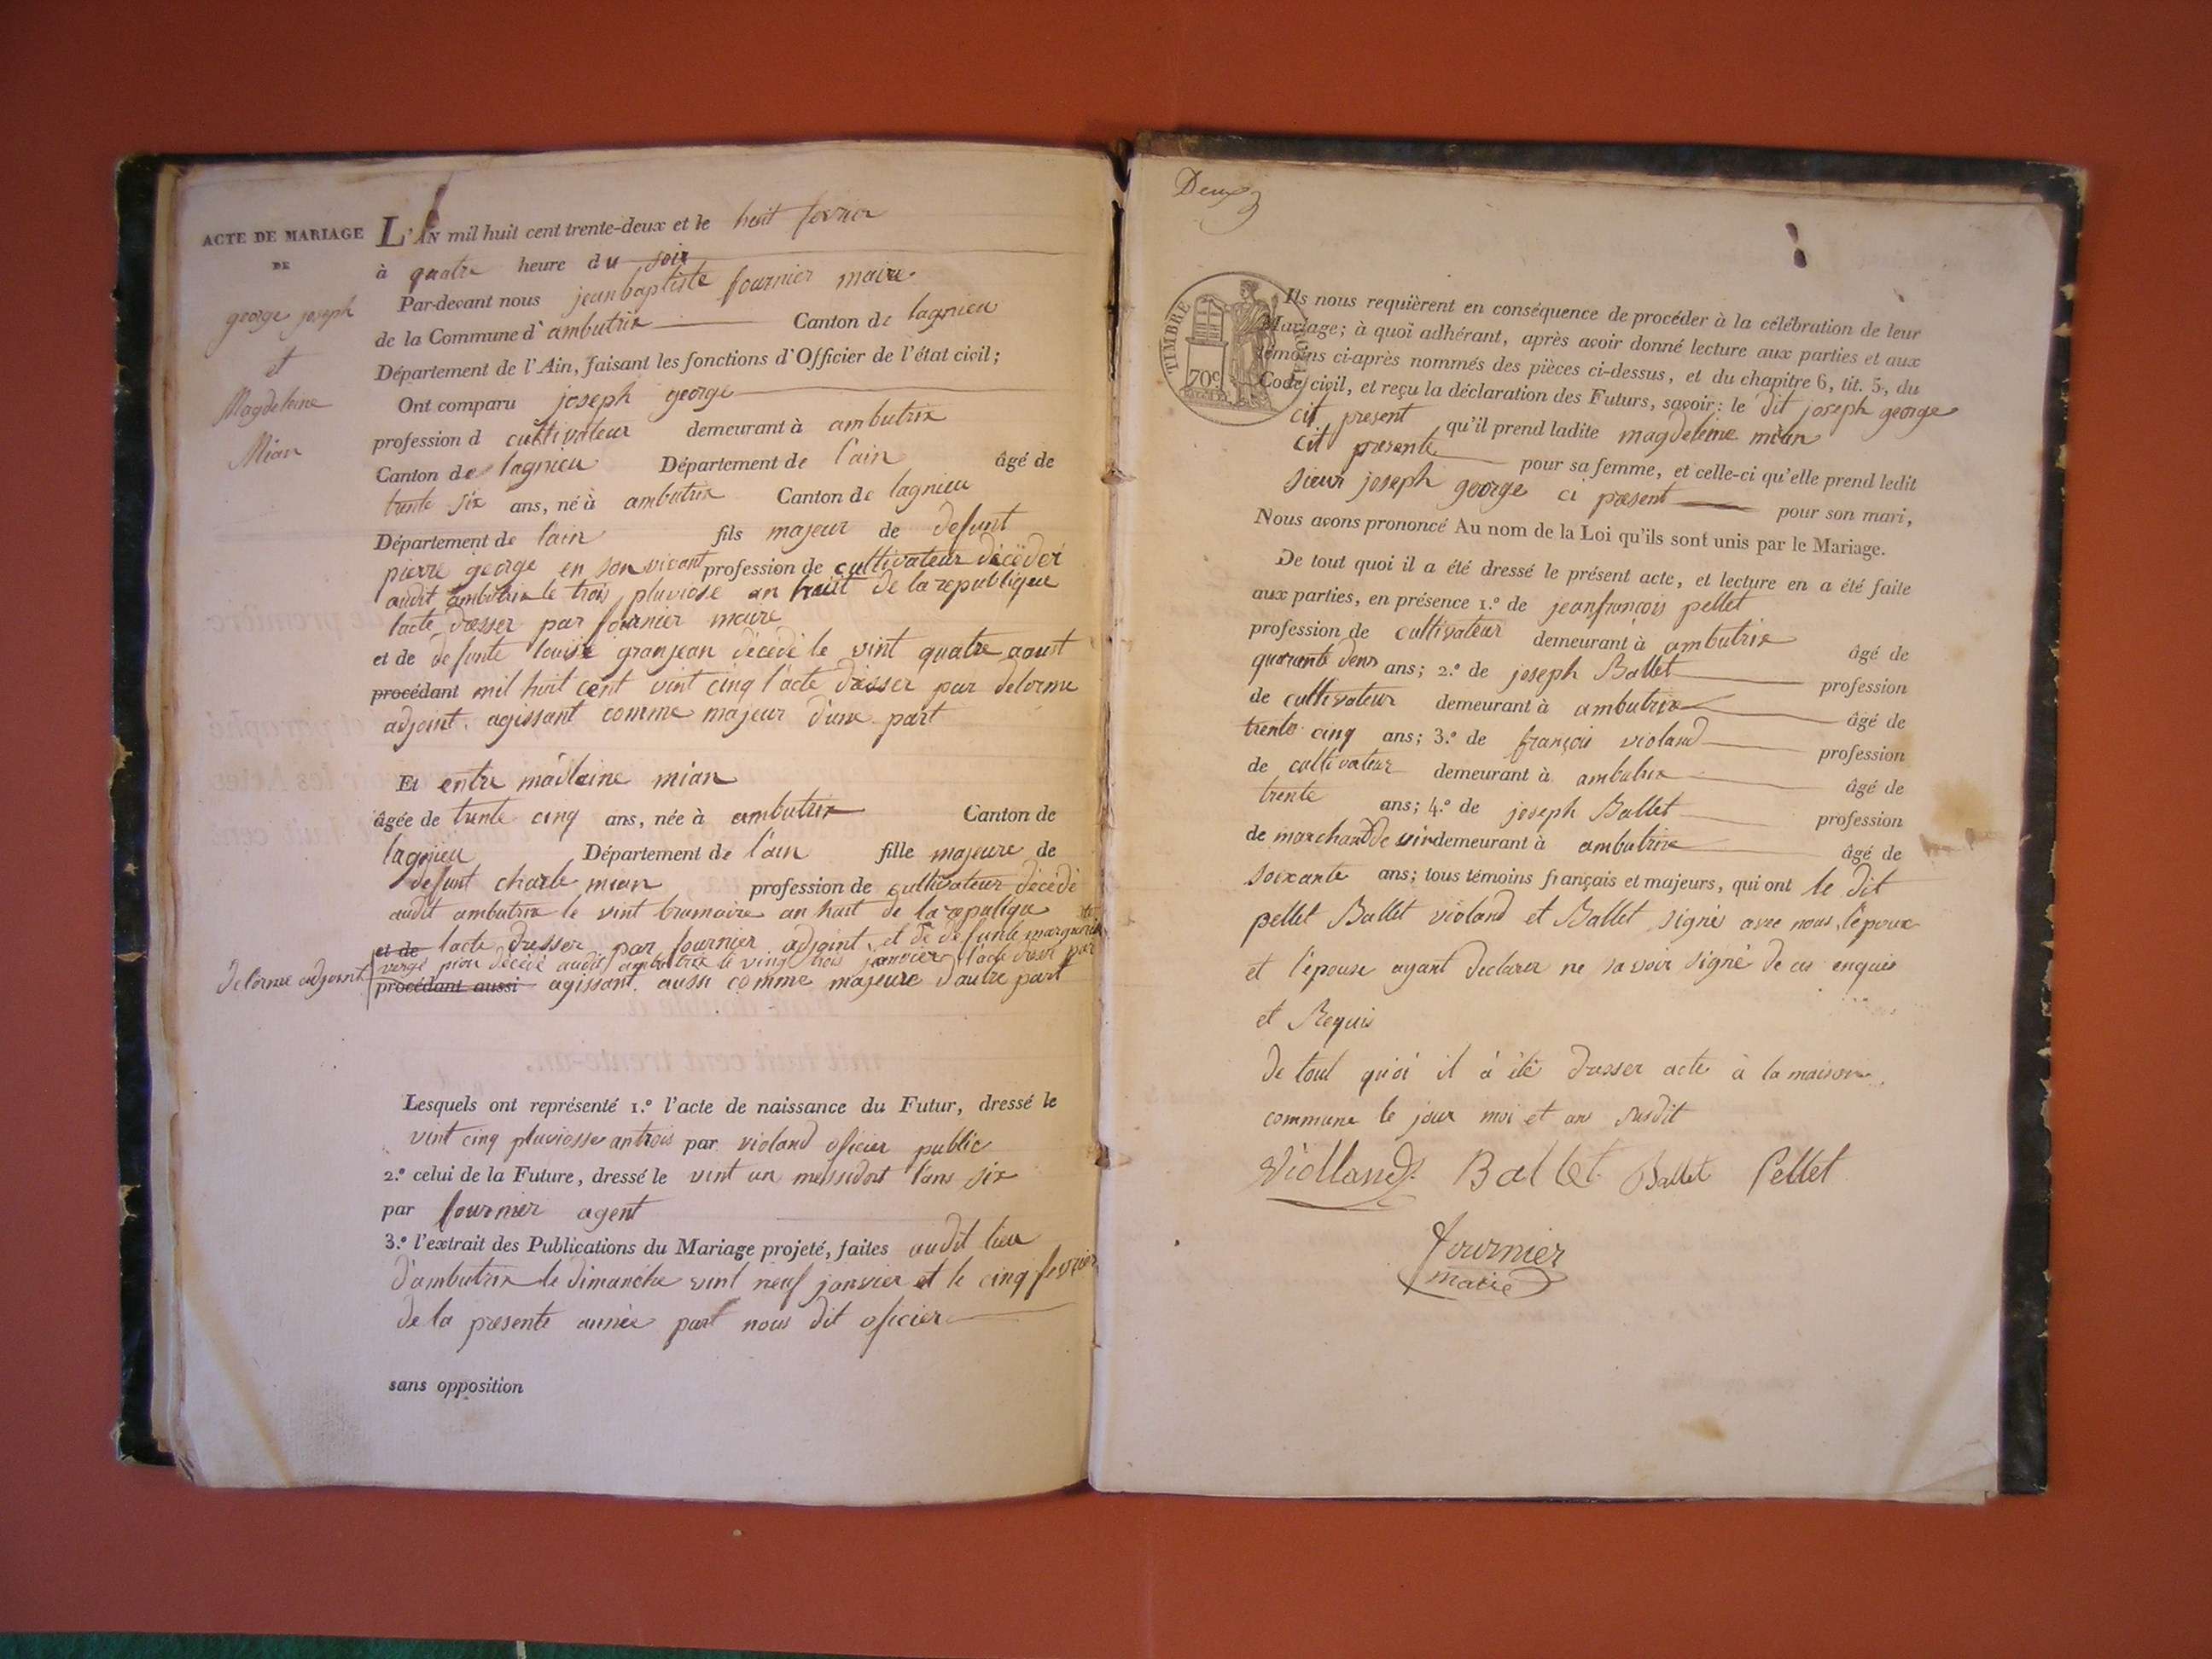 ACTE DE MARIAGE
DE
george joseph
et
Magdeleine
Mian
L'AN mil huit cent trente-deux et le huit fevrier
à quatre heure du soir
Par-devant nous jeanbaptiste fournier maire
de la Commune d'ambutrix Canton de lagnieu
Département de l'Ain, faisant les fonctions d'Officier de l'état civil;
Ont comparu joseph george
profession d cultivateur demeurant à ambutrix
Canton de lagnieu Département de l'ain âgé de
trente six ans, né à ambutrix Canton de lagnieu
Département de l'ain fils majeur de defunt
pierre george en son vivant profession de cultivateur décédé
audit ambutrix le trois pluviose an huit de la republique
lacte dresser par fournier maire
et de defunte louise granjean décédé le vint quatre aoust
procédant mil huit cent vint cinq l'acte dresser par delorme
adjoint. agissant comme majeur d'une part
Et entre madlaine mian
âgée de trente cinq ans, née à ambutrix Canton de
lagnieu Département de l'ain fille majeure de
defunt charle mian profession de cultivateur décédé
audit ambutrix le vint brumaire an huit de la republique
et de lacte dresser par fournier adjoint, et de defunte marguerite
décédé audit ambutrix le vingt trois janvier l'acte dressé par
delorme adjoint procédant aussi agissant aussi comme majeure d'autre part
Lesquels ont représenté 1.º l'acte de naissance du Futur, dressé le
vint cinq pluviosse antrois par violand oficier public
2.º celui de la Future, dressé le vint un messidor l'ans six
par fournier agent
3.º l'extrait des Publications du Mariage projeté, faites audit lieu
d'ambutrix le dimanche vint neuf janvier et le cinq fevrier
de la presente année part nous dit oficier
sans opposition
Deux
TIMBRE ROYAL
70c
Ils nous requièrent en conséquence de procéder à la célébration de leur
Mariage; à quoi adhérant, après avoir donné lecture aux parties et aux
témoins ci-après nommés des pièces ci-dessus, et du chapitre 6, tit. 5, du
Code civil, et reçu la déclaration des Futurs, savoir: le dit joseph george
cit present qu'il prend ladite magdeleine mian
cit presente pour sa femme, et celle-ci qu'elle prend ledit
sieur joseph george ci present pour son mari,
Nous avons prononcé Au nom de la Loi qu'ils sont unis par le Mariage.
De tout quoi il a été dressé le présent acte, et lecture en a été faite
aux parties, en présence 1.º de jeanfrançois pellet
profession de cultivateur demeurant à ambutrix âgé de
quarante deux ans; 2.º de joseph Ballet profession
de cultivateur demeurant à ambutrix âgé de
trente cinq ans; 3.º de françois violand profession
de cultivateur demeurant à ambutrix âgé de
trente ans; 4.º de joseph Ballet profession
de marchand de vin demeurant à ambutrix âgé de
soixante ans; tous témoins français et majeurs, qui ont le dit
pellet Ballet violand et Ballet signé avec nous, l'époux
et l'épouse ayant declarer ne savoir signé de ces enquis
et Requis
de tout quoi il à été dresser acte à la maison
commune le jour moi et an susdit
Violland Ballet Ballet Pellet
fournier
maire